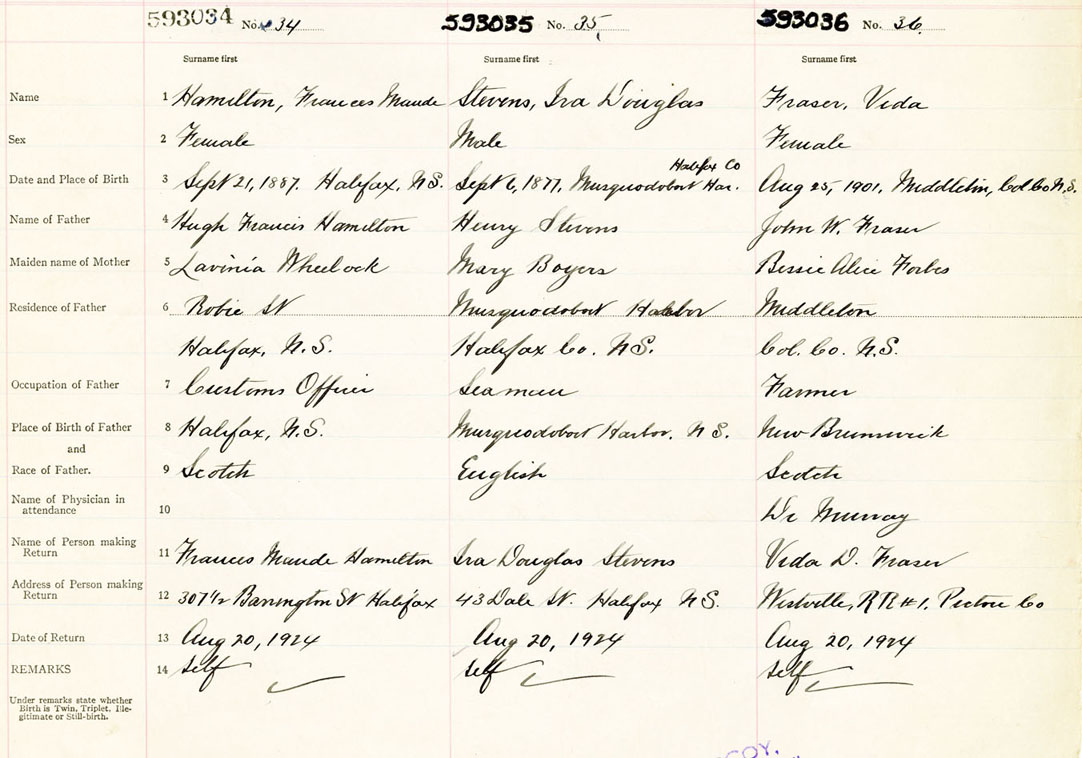 593034 No. 34 593035 No. 35 593036 No. 36
Surname first Surname first Surname first
Name 1 Hamilton, Frances Maude Stevens, Ira Douglas Fraser, Vida
Sex 2 Female Male Female
Halifax Co
Date and Place of Birth 3 Sept 21, 1887. Halifax, N.S. Sept 6, 1877, Musquodoboit Har. Aug 25, 1901, Middleton, Col. Co N.S.
Name of Father 4 Hugh Francis Hamilton Henry Stevens John W. Fraser
Maiden name of Mother 5 Lavinia Wheelock Mary Boyers Bessie Alice Forbes
Residence of Father 6 Robie St Musquodoboit Harbor Middleton
Halifax, N.S. Halifax Co. N.S. Col. Co. N.S.
Occupation of Father 7 Customs Officer Seaman Farmer
Place of Birth of Father 8 Halifax, N.S. Musquodoboit Harbor, N.S. New Brunswick
and
Race of Father. 9 Scotch English Scotch
Name of Physician in
attendance 10 Dr Murray
Name of Person making
Return 11 Frances Maude Hamilton Ira Douglas Stevens Vida D. Fraser
Address of Person making
Return 12 307½ Barrington St Halifax 43 Dale St. Halifax N.S. Westville, RR#1, Pictou Co
Date of Return 13 Aug 20, 1924 Aug 20, 1924 Aug 20, 1924
REMARKS 14 Self Self Self
Under remarks state whether
Birth is Twin, Triplet, Ille-
gitimate or Still-birth.